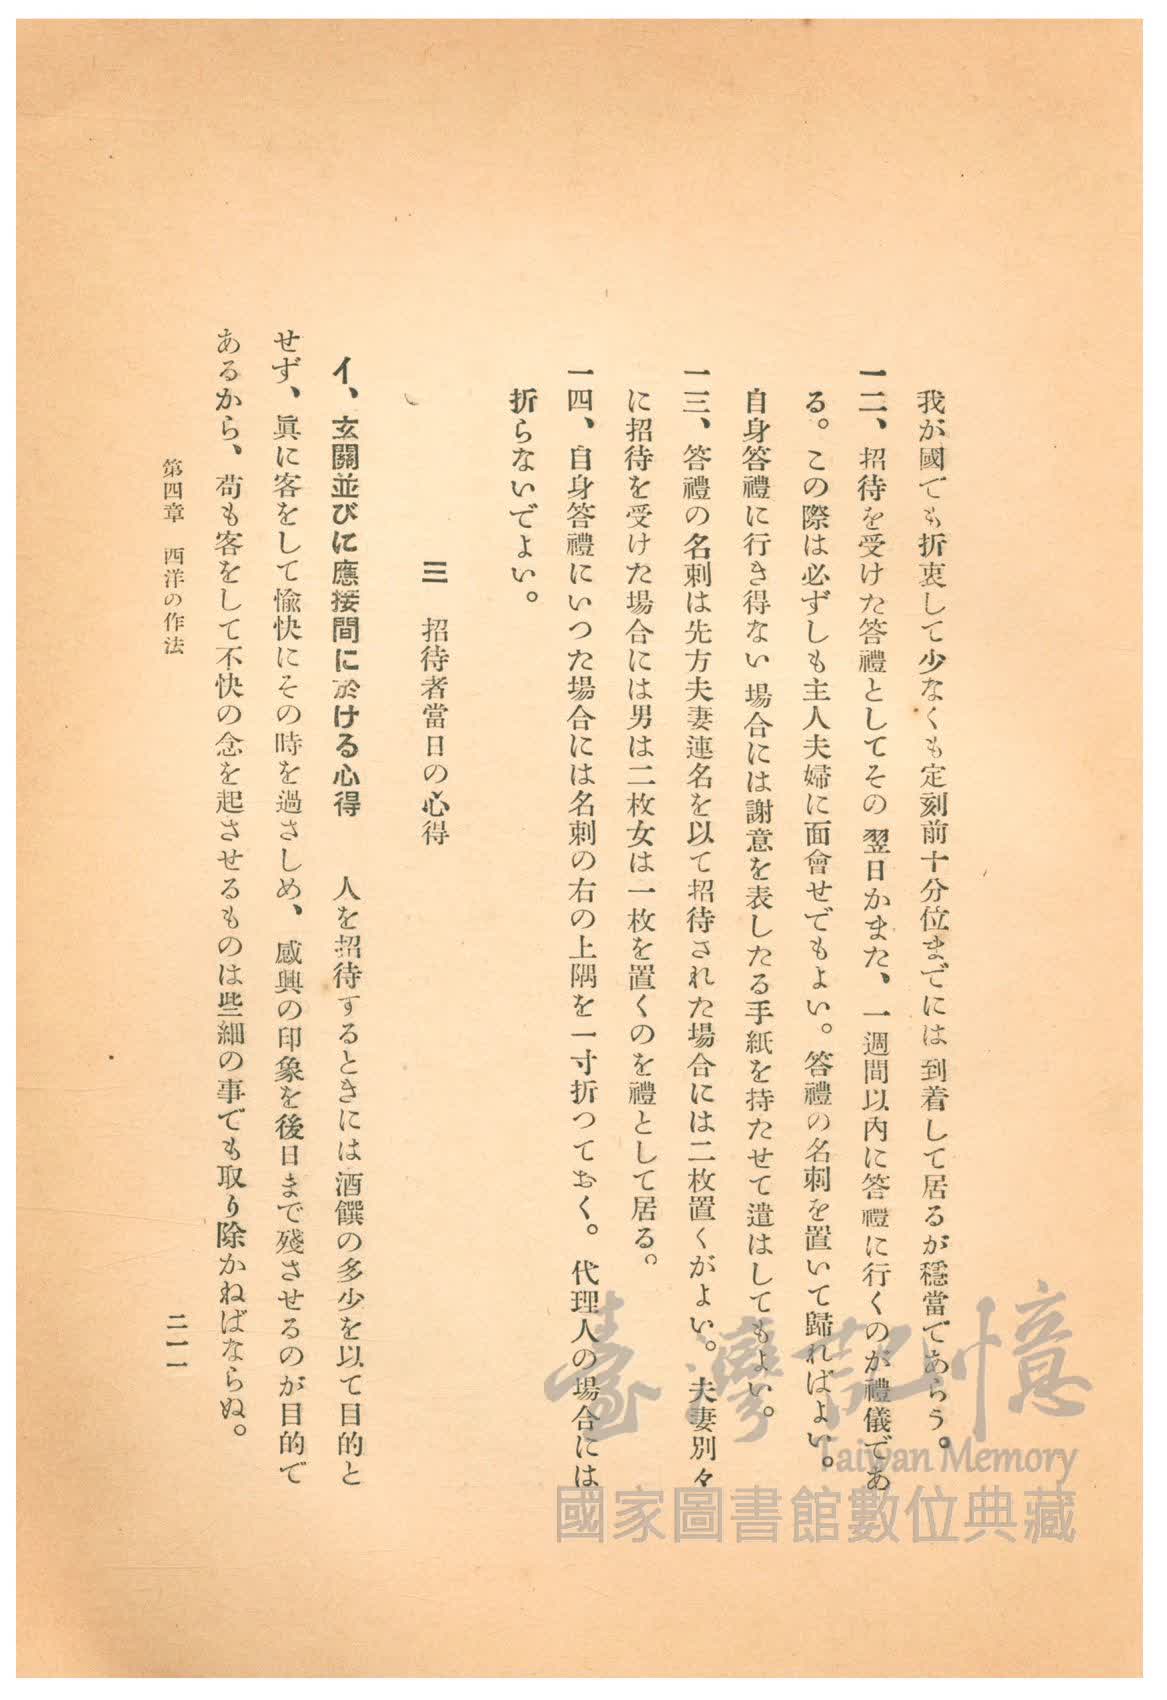 我が國でも折衷して少なくも定刻前十分位までには到着して居るが穩當であらう。
一二、招待を受けた答禮としてその翌日かまた、一週間以內に答禮に行くのが禮儀であ
る。この際は必ずしも主人夫婦に面會せでもよい。答禮の名刺を置いて歸ればよい。
自身答禮に行き得ない場合には謝意を表したる手紙を持たせて遣はしてもよい。
一三、答禮の名刺は先方夫妻連名を以て招待された場合には二枚置くがよい。夫妻別々
に招待を受けた場合には男は二枚女は一枚を置くのを禮として居る。
一四、自身答禮にいつた場合には名刺の右の上隅を一寸折つておく。代理人の場合には
折らないでよい。
三　招待者當日の心得
イ、玄關並びに應接間に於ける心得　人を招待するときには酒饌の多少を以て目的と
せず、眞に客をして愉快にその時を過さしめ、感興の印象を後日まで殘させるのが目的で
あるから、苟も客をして不快の念を起させるものは些細の事でも取り除かねばならぬ。
第四章　西洋の作法
二一一
臺灣記憶
Taiwan Memory
國家圖書館數位典藏